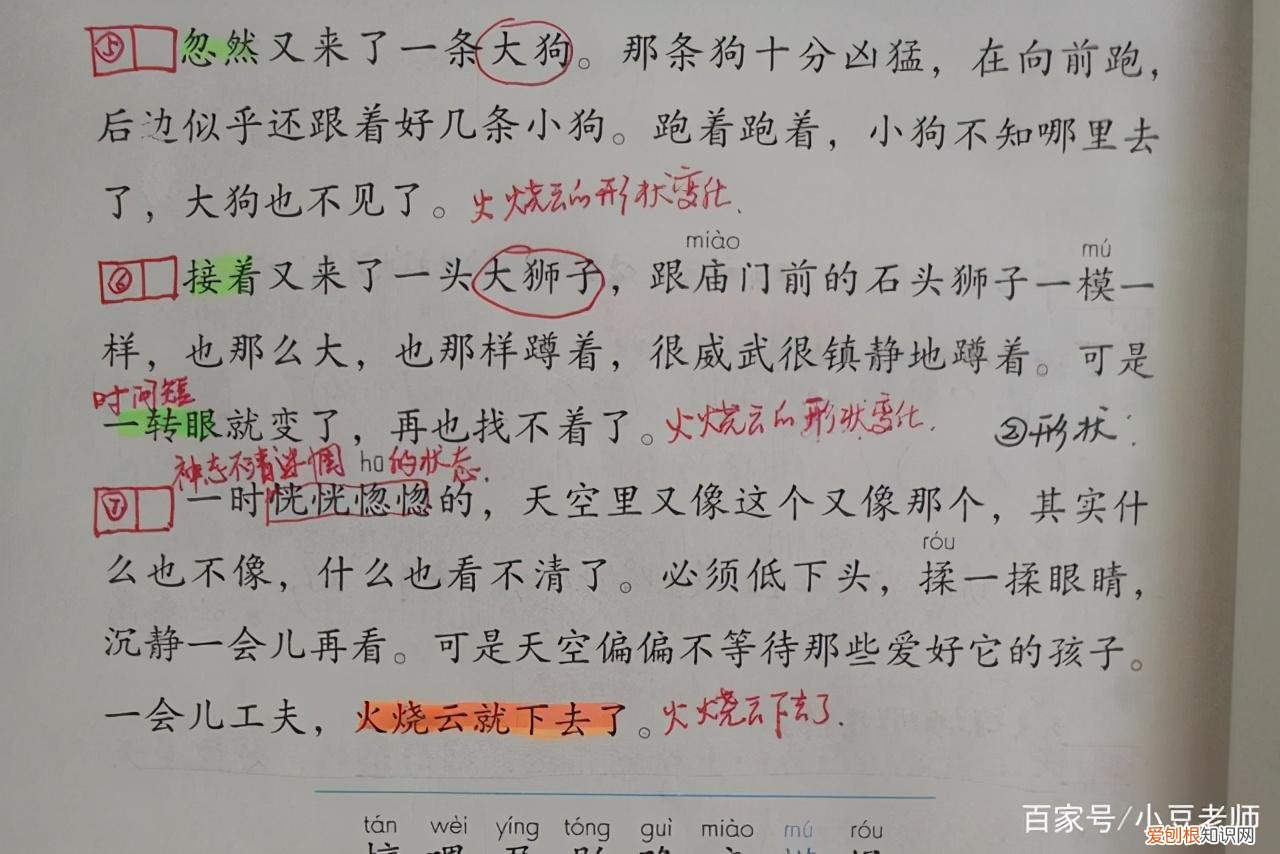 ⑤忽然又来了一条大狗。那条狗十分凶猛，在向前跑，
后边似乎还跟着好几条小狗。跑着跑着，小狗不知哪里去
了，大狗也不见了。火烧云的形状变化.
miào mú
⑥接着又来了一头大狮子，跟庙门前的石头狮子一模一
样，也那么大，也那样蹲着，很威武很镇静地蹲着。可是
时间短
一转眼就变了，再也找不着了。火烧云的形状变化. ②形状:
神态不清迷惘 hū的状态.
⑦一时恍恍惚惚的，天空里又像这个又像那个，其实什
么也不像，什么也看不清了。必须低下头，揉一揉眼睛，
róu
沉静一会儿再看。可是天空偏偏不等待那些爱好它的孩子。
一会儿工夫，火烧云就下去了。火烧云下去了.
tán wèi yíng tóng guì miào mú róu
百家号/小豆老师
爱刨根知识网